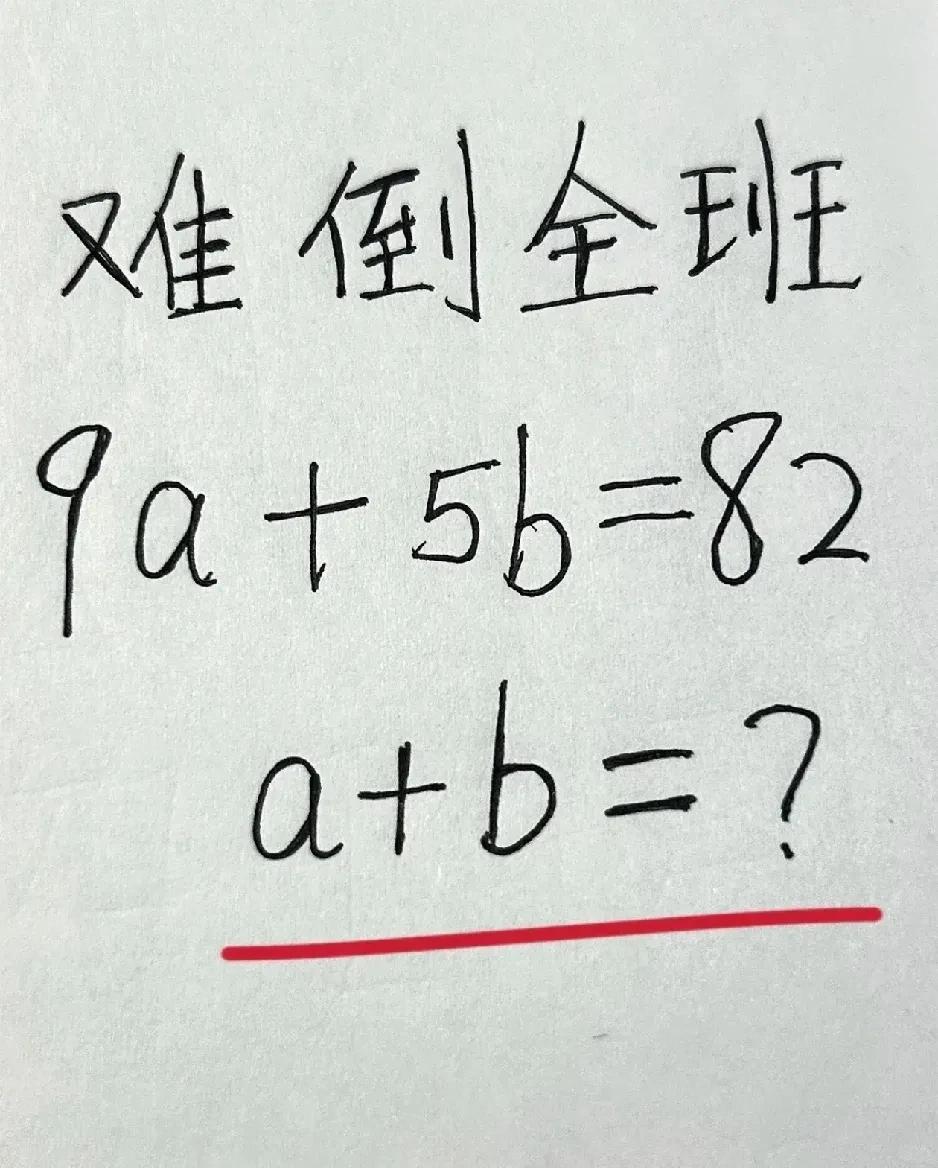 难倒全班
9a+5b=82
a+b=?